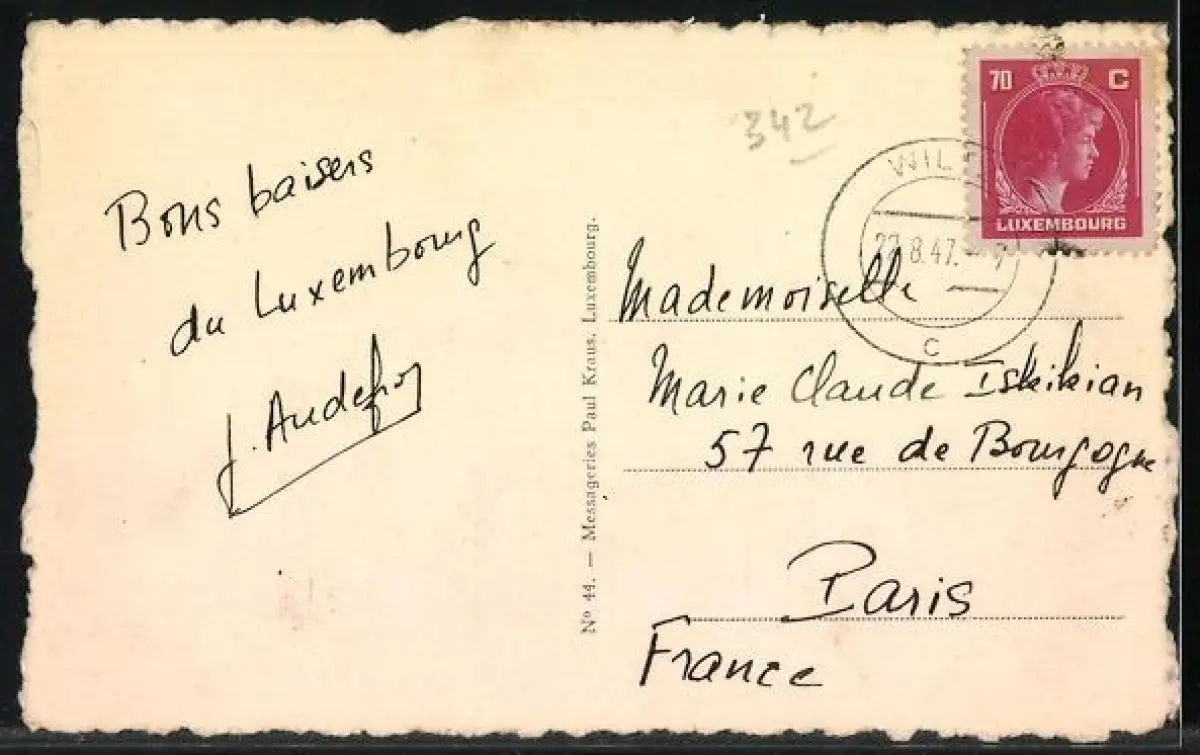 Bons baisers
du Luxembourg
J. Audefroy
342
70 C
LUXEMBOURG
22.8.47.
C
Nº 44. — Messageries Paul Kraus, Luxembourg.
Mademoiselle
Marie Claude Iskikian
57 rue de Bourgogne
Paris
France